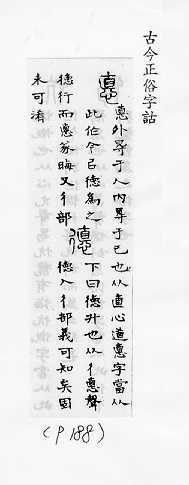 古今正俗字詁
悳
悳外㝵于人内㝵于己也从直心道悳字當从
此作今㠯德為之
德行而悳篆晦又彳部
德
下曰德升也从彳悳聲
德入彳部義可知矣固
未可淆
(P188)